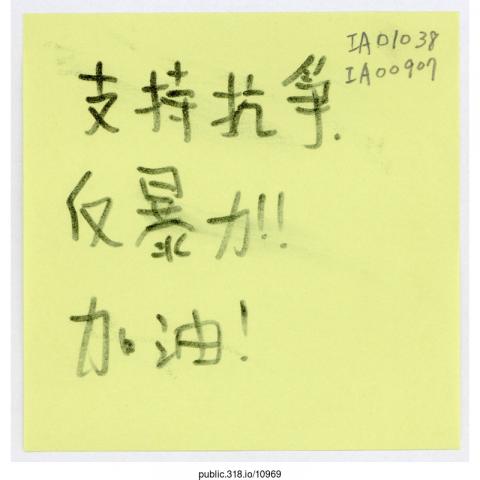 IA01038
IA00907
支持抗爭.
反暴力!!
加油!
public.318.io/10969